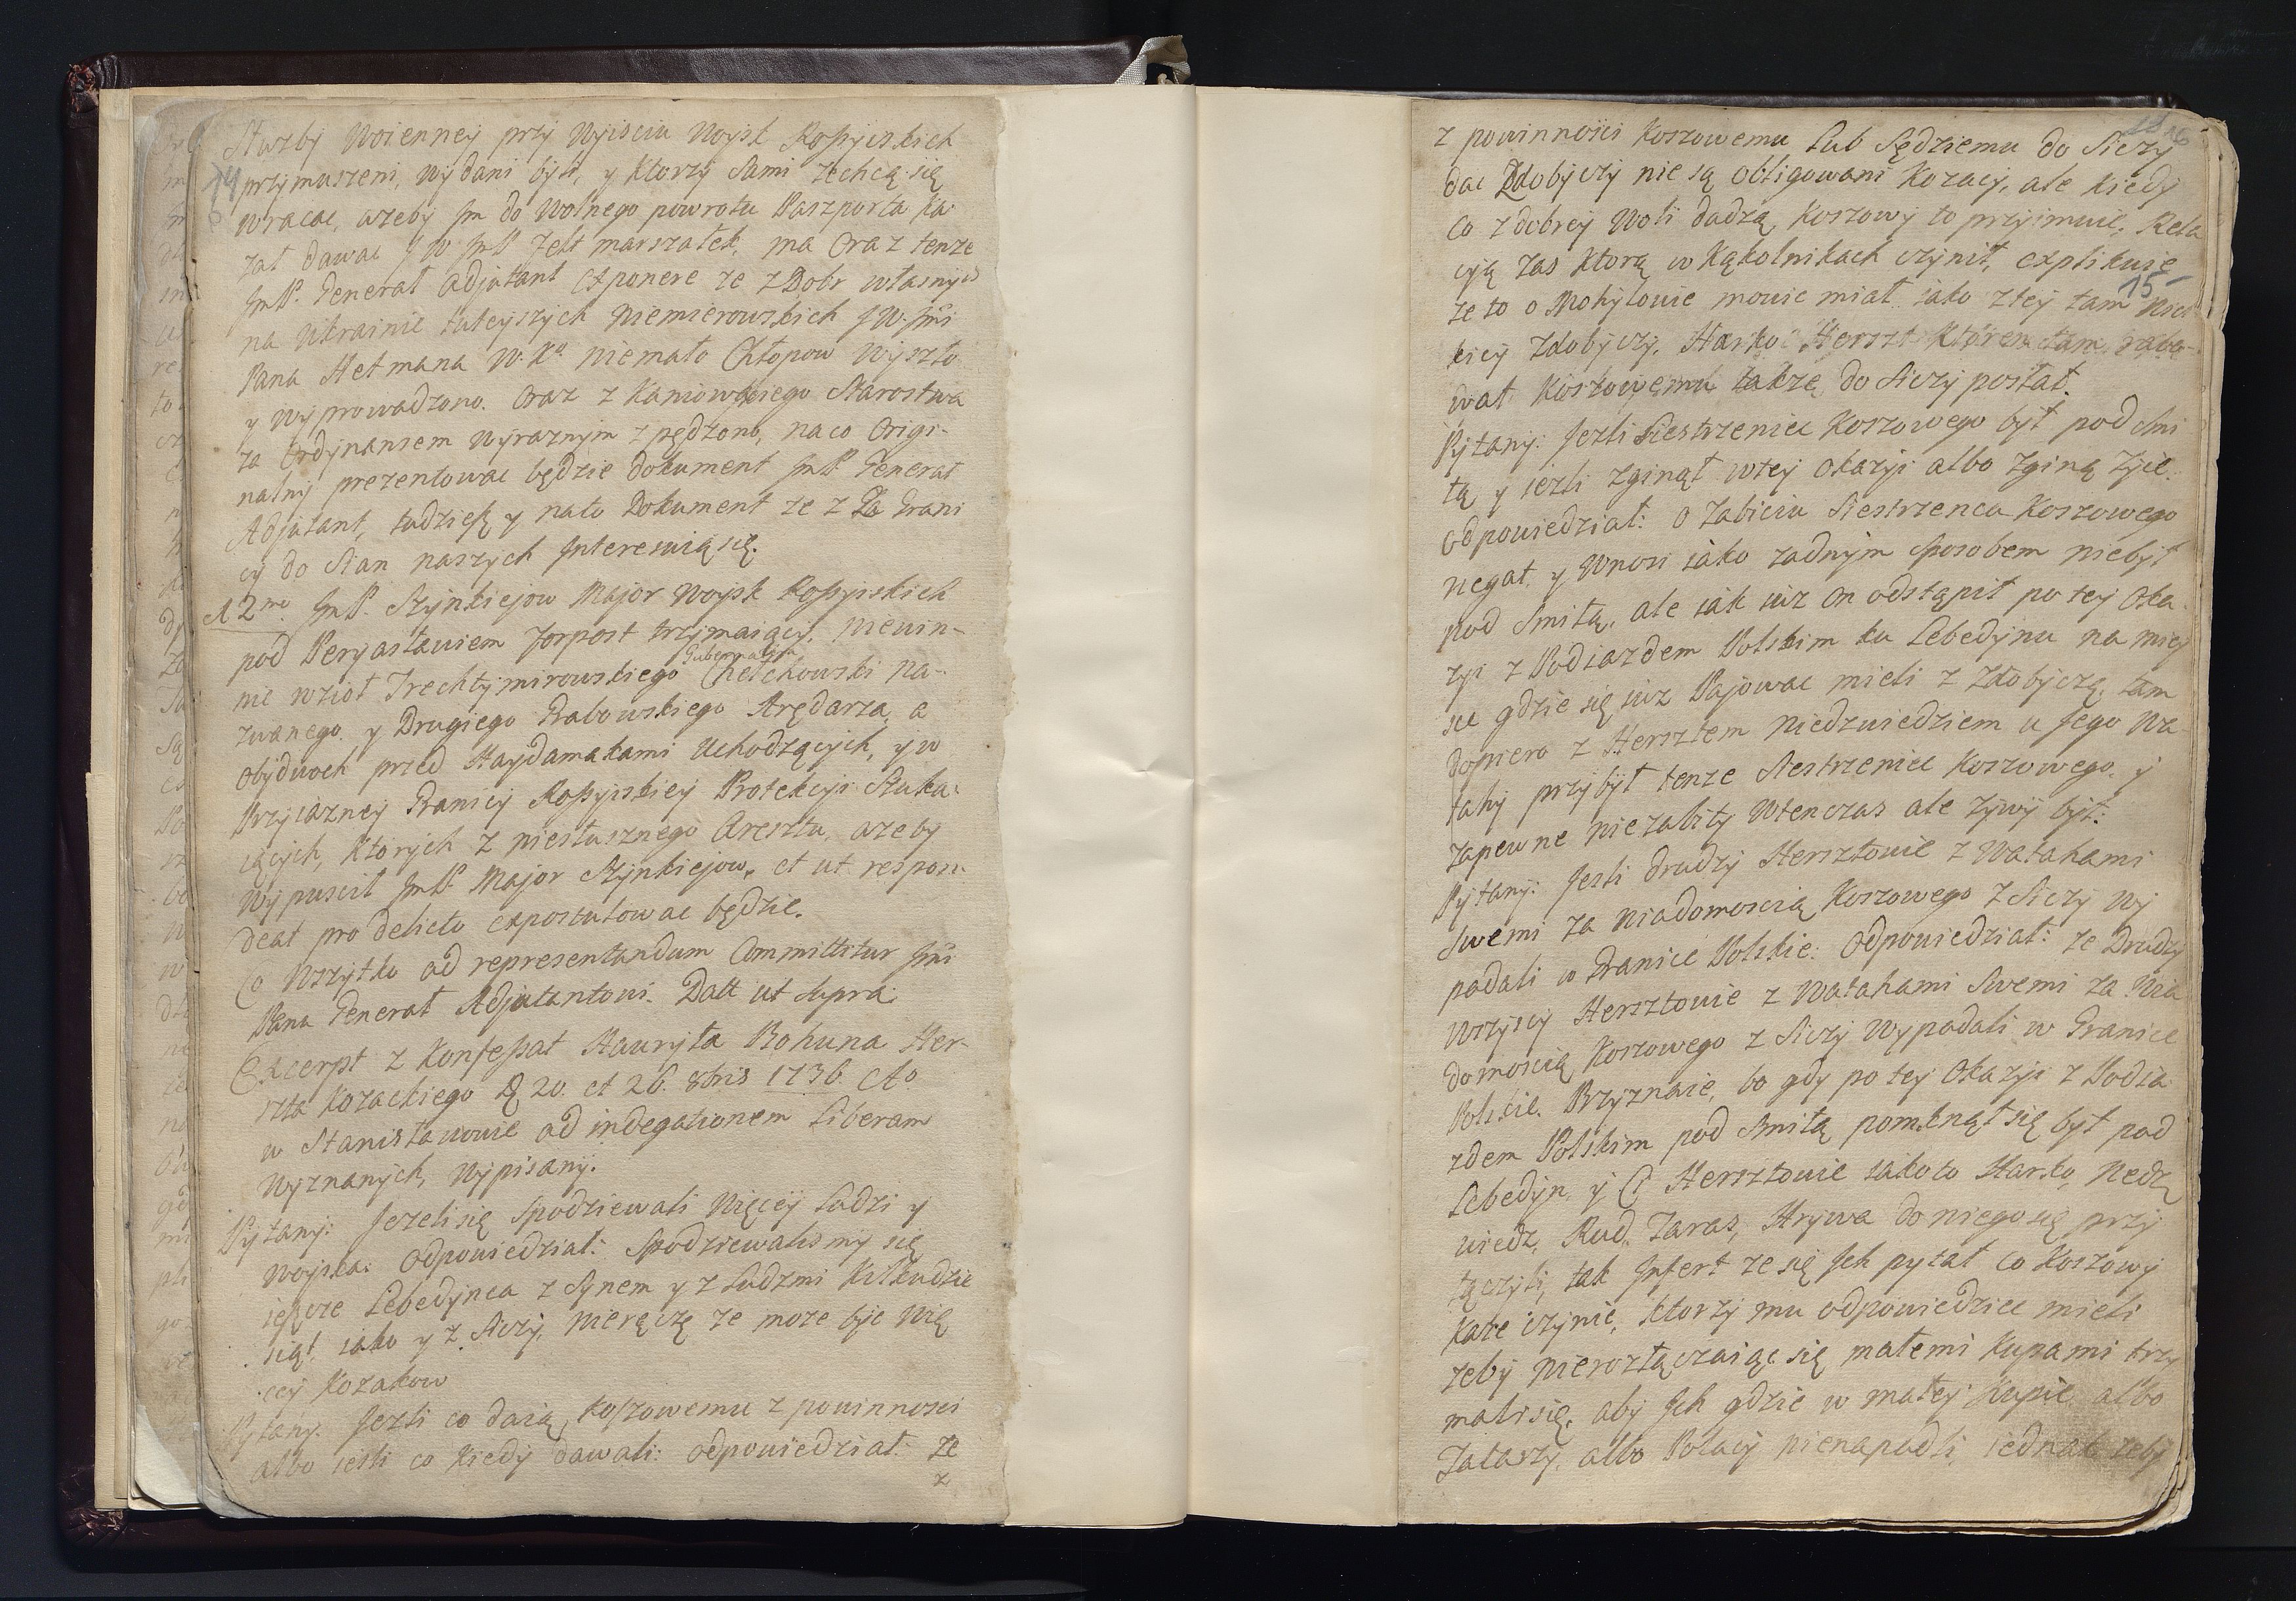 Służby Woienney przy Wyisciu Woysk Rossyiskich
14
przymuszeni, wydani byli, y ktorzy sami zechcą się
wracac, azeby Im do wolnego powrotu Paszporta ka
zał dawac J W JmP. Felt marszałek, ma Oraz tenze
JmP. Generał Adjutant exponere ze z Dobr własnych
na Ukrainie tuteyszych Niemierowskich J W. Jmci
Pana Hetmana W. Ko. niemało Chłopow Wyszło
y wyprowadzono. Oraz z Kaniowskiego Starostwa
za Ordynansem wyraznym zpędzono, na co Origi-
nalny prezentowac będzie dokument JmP. Generał
Adjutant, tudziesz y na to Dokument ze z Za Grani
cy do Stan naszych Interesuią się.
A 2do JmP. Szynkiejow Major Woysk Rossyiskich
pod Peryasławiem Forpost trzymaiący, niewin-
nie wzioł Trechtymirowskiego Gubernatora Chełchowski na-
zwanego y Drugiego Grabowskiego Arędarza, a
obydwoch przed Haydamakami Uchodzących, y w
Przyiazney Granicy Rossyiskiey Protekcyi Szuka-
iących, ktorych z niesłusznego Aresztu, azeby
wypuscił JmP. Major Szynkiejow, et ut respon-
deat pro delicto expostulowac będzie.
Co wszytko ad representandum Committitur Jmci
Pana Generał Adjutantowi. Datt ut supra.
Excerpt z Konfessat Hawryła Bohuna Her-
szta Kozackiego D. 20. et 26. 8bris 1736. Ao
w Stanisławowie ad indegationem Liberam
wyznanych, wypisany.
Pytany: Jezeli się spodziewali więcey Ludzi y
woyska: Odpowiedział: Spodziewalismy się
ieszcze Lebedynca z Synem y z Ludzmi kilkudzie
siąt, iako y z Siczy, nieręczę ze moze byc wię
cey Kozakow
Pytany. Jezli co daią, Koszowemu z powinnosci
albo iesli co kiedy dawali: odpowiedział: ze
z
z powinnosci Koszowemu Lub Sędziemu do Siczy
dac Zdobyczy nie są obligowani Kozacy, ale kiedy
co z dobrey Woli dadzą, Koszowy to przyimuie, Rela
cyą zas ktorą w Kąkolnikach czynił, explikuie
15
ze to o Mohylowie mowic miał iako z tey tam
kiey Zdobyczy, Harko Herszt ktoren tam rabo-
wał Koszowemu takze do Siczy posłał.
Pytany: Jezli Siestrzeniec Koszowego był pod Smi
łą y iezli zginął w tey okazyi albo zginą zyie.
odpowiedział: o zabiciu Siestrzenca Koszowego
negat. y Wnosi iako zadnym sposobem niebył
pod Smiłą, ale iak iuz on odstąpił po tey Oka-
zyi z Podiazdem Polskim ku Lebedynu na miey
sce gdzie się iuz Pajowac mieli z Zdobyczą, tam
dopiero z Hersztem Niedzwiedziem u Jego Wa
tahy przybył tenze Siestrzeniec Koszowego, y
zapewne niezabity wtenczas ale zywy był.
Pytany: Jesli drudzy Hersztowie z Watahami
swemi za Wiadomoscią Koszowego z Siczy wy
padali w Granice Polskie: Odpowiedział: ze Drudzy
wszyscy Hersztowie z Watahami Swemi za Wia
domoscią Koszowego z Siczy wypadali w Granice
Polskie. Przyznaie, bo gdy po tey Okazyi z Podia-
zdem Polskim pod Smiłą pomknął się był pod
Lebedyn, y Ci Hersztowie iako to Harko, Niedz
wiedz, Rud. Taras, Hrywa do niego się przy
łączyli, tak Infert ze się Ich pytał co Koszowy
kaze czynic, ktorzy mu odpowiedziec mieli
zeby nierozłączaiąc się małemi Kupami trzy
mali się, aby Ich gdzie w małey Kupie albo
Tatarzy, albo Polacy nienapadli, iednak zeby